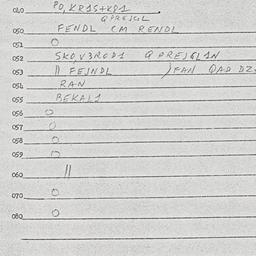 040 PO, KR1S+K91
QPRESGL
050 FENDL CM RENDL
051 O
052 SKOV3ROD1 QPRESGL1N
053 || FEJNDL ) FAN QAD DZ
054 RAN
055 BEKAL1
056 O
057 O
058 O
059 O
060 ||
070 O
080 O